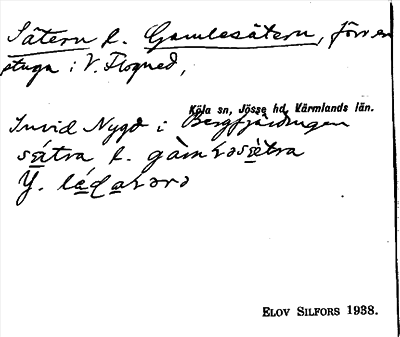 Sätern l. Gamlesätern, förr en
stuga i V. Flogned,
Köla sn, Jösse hd, Värmlands län.
Invid Nygd i Bergfjärdingen
sätra l. gàm
Y.
ELOV SILFORS 1938.